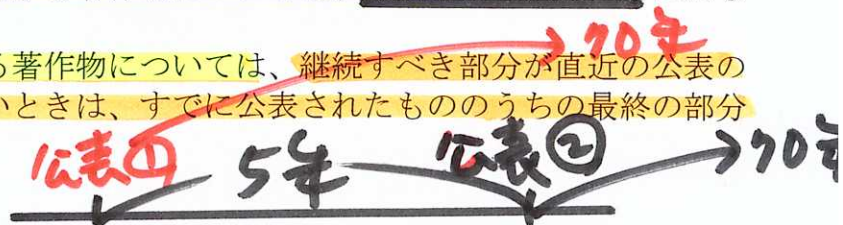 70年
る著作物については、継続すべき部分が直近の公表の
いときは、すでに公表されたもののうちの最終の部分
公表① 5年 公表② 70年